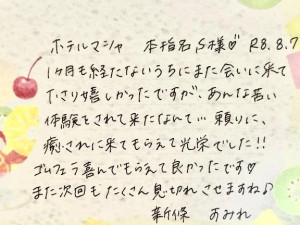 ホテルマシャ 本指名S様♡ R8.8.7
1ヶ月も経たないうちにまた会いに来て
下さり嬉しかったですが、あんな苦い
体験をされて来たなんて… 頼りに、
癒されに来てもらえて光栄でした!!
ゴムフェラ喜んでもらえて良かったです♡
また次回もたくさん息切れさせますね♪
新保 すみれ